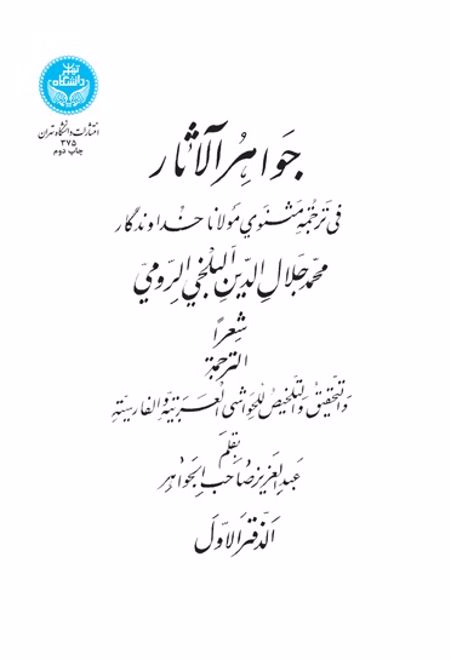 انتشارات دانشگاه تهران
۳۷۵
چاپ دوم
جَوَاهِرُ الآثَار
فی تَرجُمَةِ مَثنَوي مَولانا خداوندگار
محمّد جَلالِ الدّينِ البَلْخيِ الرّوميّ
شِعراً
الترجمة
وَالتَّحقيقُ وَالتَّلخيصُ لِلحَواشى العَرَبيّةِ وَالفارسيّةِ
بِقَلَم
عَبدِ العَزيز صَاحب الجَواهِر
اَلدّفتَر الاَوّل